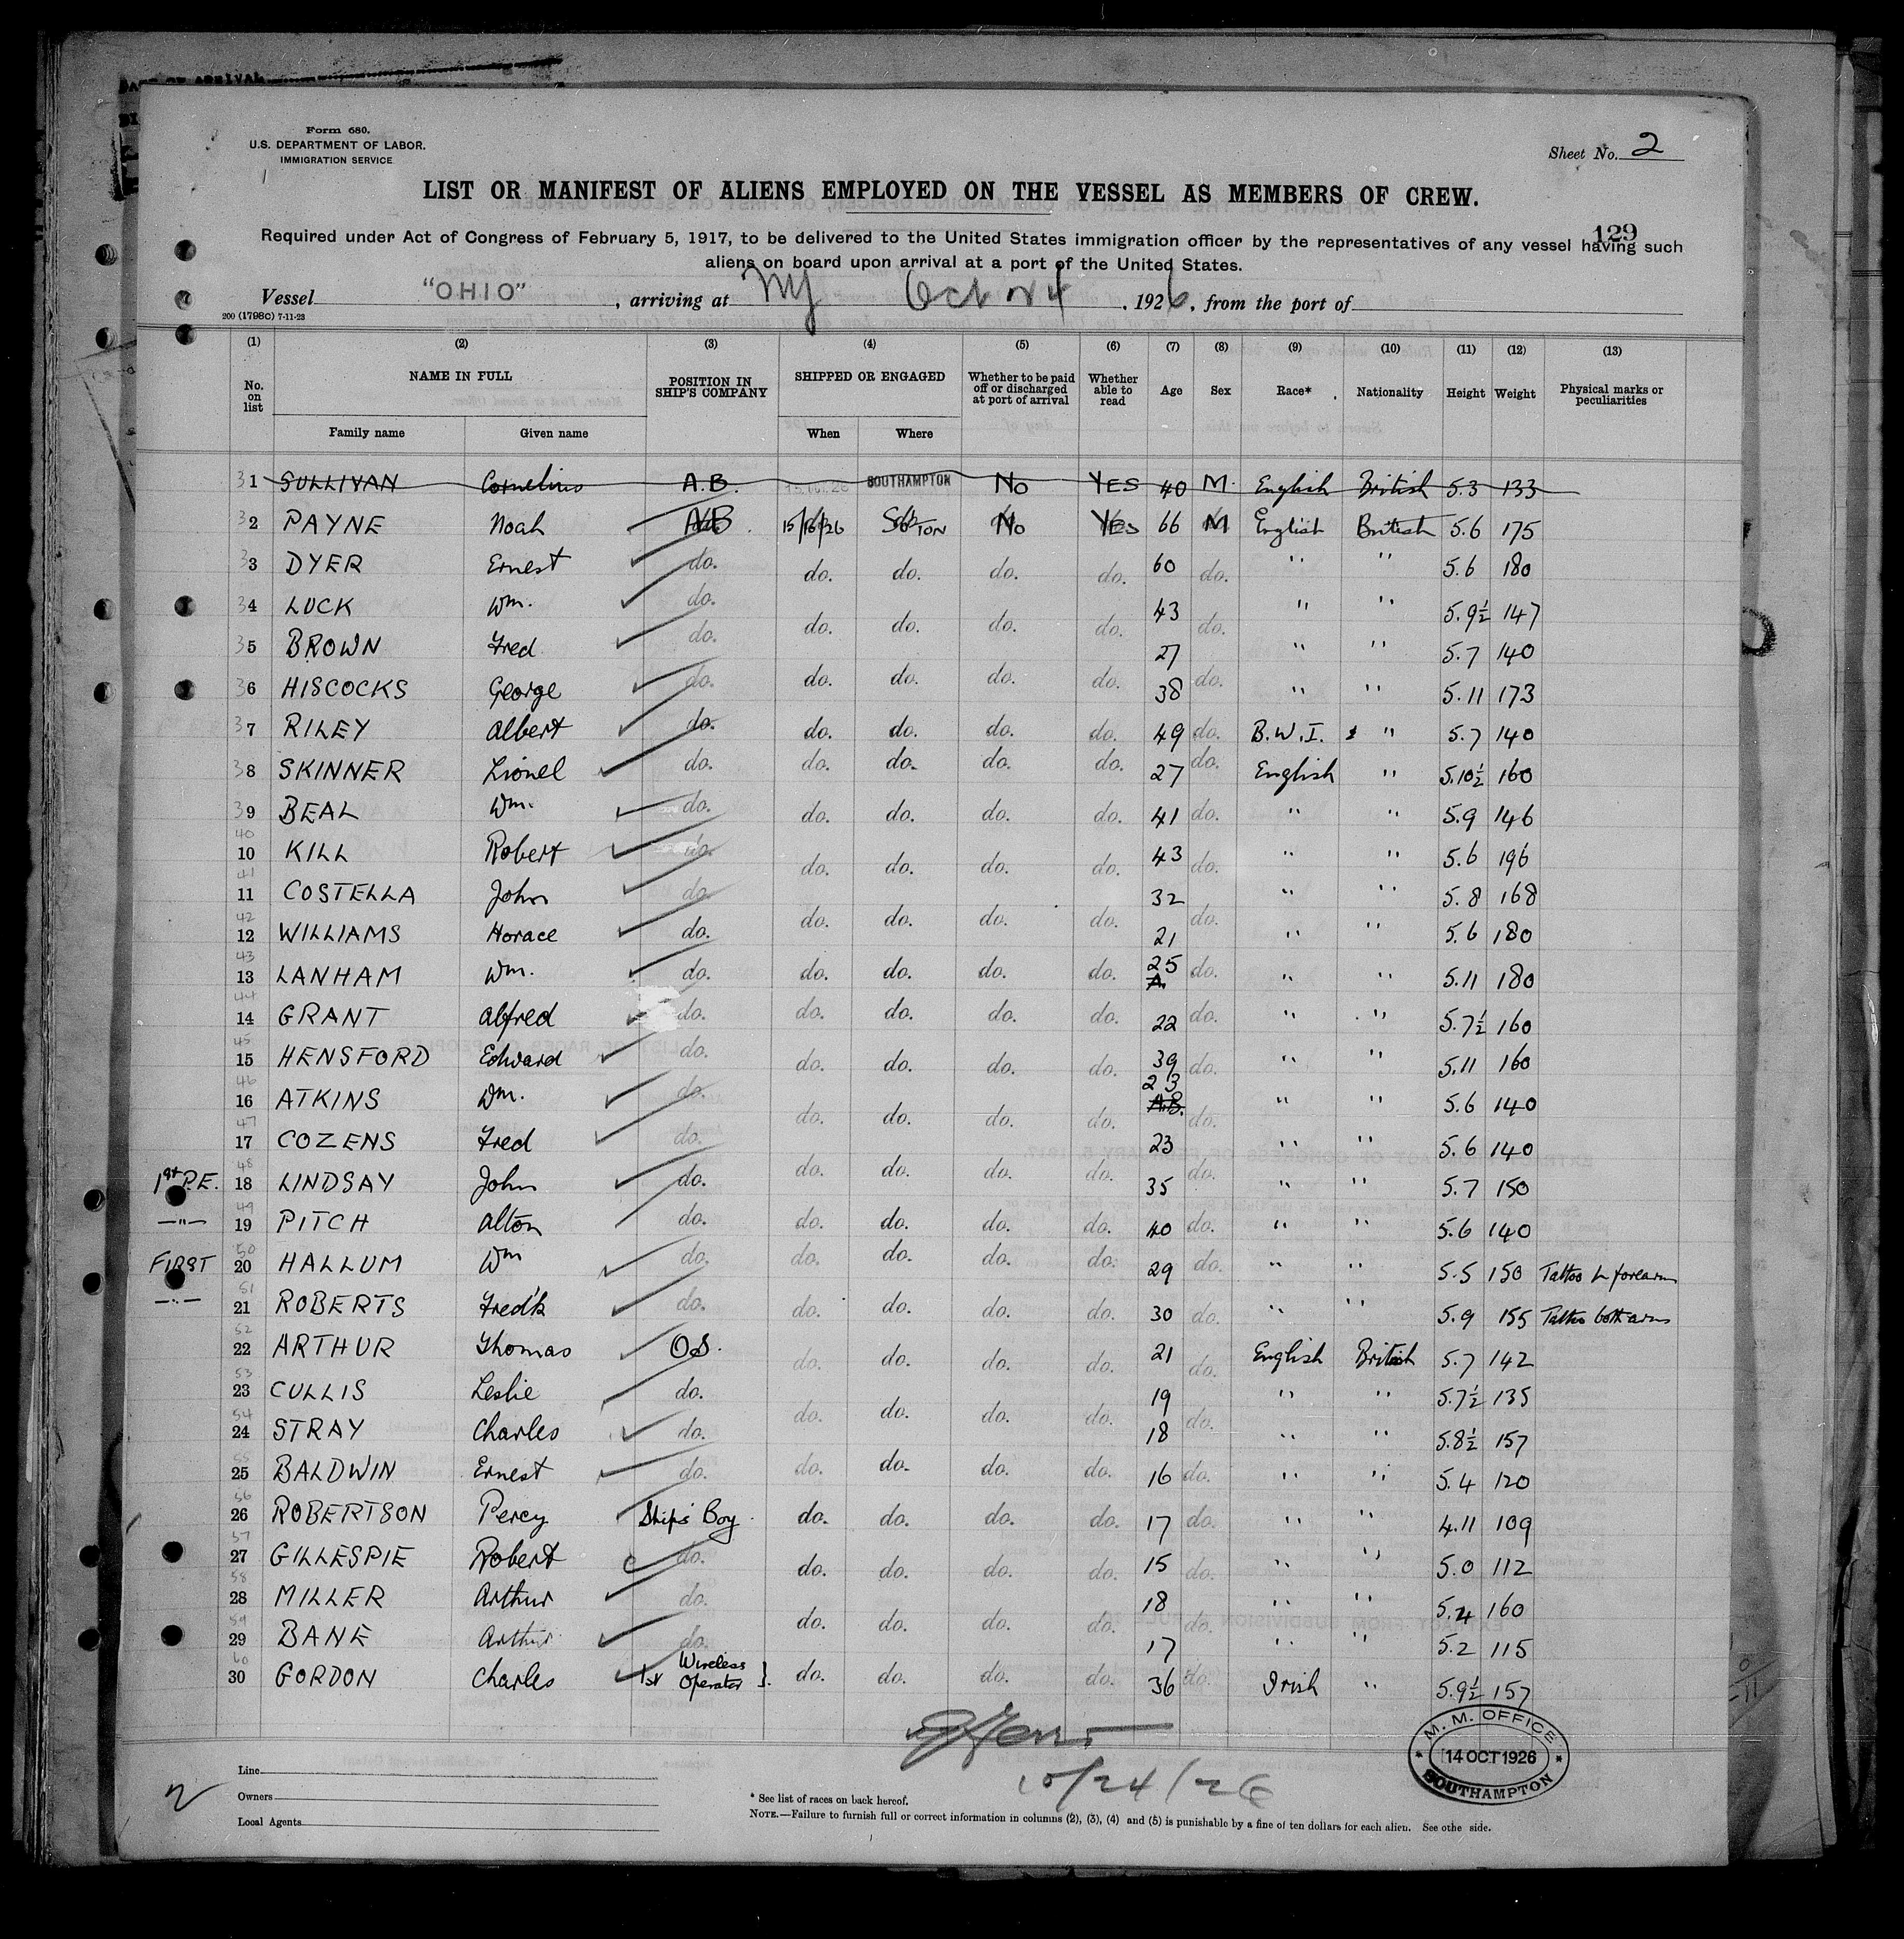 Form 680.
U.S. DEPARTMENT OF LABOR.
IMMIGRATION SERVICE
Sheet No. 2
LIST OR MANIFEST OF ALIENS EMPLOYED ON THE VESSEL AS MEMBERS OF CREW.
129
Required under Act of Congress of February 5, 1917, to be delivered to the United States immigration officer by the representatives of any vessel having such
aliens on board upon arrival at a port of the United States.
Vessel "OHIO", arriving at NY Oct 24, 1926, from the port of
200 (1798C) 7-11-23
(1) (2) (3) (4) (5) (6) (7) (8) (9) (10) (11) (12) (13)
No. on list NAME IN FULL POSITION IN SHIP'S COMPANY SHIPPED OR ENGAGED Whether to be paid off or discharged at port of arrival Whether able to read Age Sex Race* Nationality Height Weight Physical marks or peculiarities
Family name Given name When Where
31 SULLIVAN Cornelius A.B. SOUTHAMPTON No YES 40 M. English British 5.3 133
32 PAYNE Noah AB 15/10/26 So'TON No YES 66 M English British 5.6 175
33 DYER Ernest do. do. do. do. do. 60 do. " " 5.6 180
34 LUCK Wm. do. do. do. do. do. 43 do. " " 5.9½ 147
35 BROWN Fred do. do. do. do. do. 27 do. " " 5.7 140
36 HISCOCKS George do. do. do. do. do. 38 do. " " 5.11 173
37 RILEY Albert do. do. do. do. do. 49 do. B.W.I. " 5.7 140
38 SKINNER Lionel do. do. do. do. do. 27 do. English " 5.10½ 160
39 BEAL Wm. do. do. do. do. do. 41 do. " " 5.9 146
40
10 KILL Robert do. do. do. do. do. 43 do. " " 5.6 196
41
11 COSTELLA John do. do. do. do. do. 32 do. " " 5.8 168
42
12 WILLIAMS Horace do. 21 " " 5.6 180
43
13 LANHAM Wm. do. do. do. do. do. 25 A. do. " " 5.11 180
44
14 GRANT Alfred do. do. do. do. do. 22 do. " " 5.7½ 160
45
15 HENSFORD Edward do. do. do. do. do. 39 do. " " 5.11 160
46
16 ATKINS Wm. do. do. do. do. do. 23 A.B. do. " " 5.6 140
47
17 COZENS Fred do. 23 " " 5.6 140
48
1st P.E. 18 LINDSAY John do. do. do. do. do. 35 do. " " 5.7 150
49
—"— 19 PITCH Alton do. do. do. do. do. 40 do. " " 5.6 140
50
FIRST 20 HALLUM Wm do. do. do. do. do. 29 do. " " 5.5 150 Tattoo L forearm
51
—"— 21 ROBERTS Fred'k do. do. do. do. do. 30 do. " " 5.9 155 Tattoo both arms
52
22 ARTHUR Thomas OS. do. do. do. do. 21 do. English British 5.7 142
53
23 CULLIS Leslie do. do. do. do. do. 19 do. " " 5.7½ 135
54
24 STRAY Charles do. 18 " " 5.8½ 157
55
25 BALDWIN Ernest do. do. do. do. do. 16 do. " " 5.4 120
56
26 ROBERTSON Percy Ship's Boy. do. do. do. do. 17 do. " " 4.11 109
57
27 GILLESPIE Robert do. do. do. do. do. 15 do. " " 5.0 112
58
28 MILLER Arthur do. 18 " " 5.4 160
59
29 BANE Arthur do. do. do. do. do. 17 do. " " 5.2 115
60
30 GORDON Charles 1st Wireless Operator }. do. do. do. do. 36 do. Irish " 5.9½ 157
10/24/26
M. M. OFFICE
14 OCT 1926
SOUTHAMPTON
Line
Owners
Local Agents
2
* See list of races on back hereof.
NOTE.—Failure to furnish full or correct information in columns (2), (3), (4) and (5) is punishable by a fine of ten dollars for each alien. See othe side.